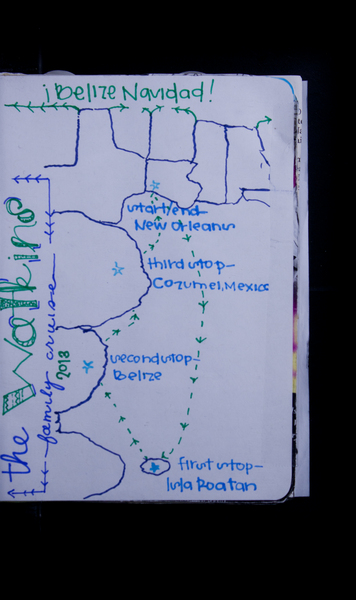 ¡Belize Navidad!
the
Watkins
family cruise
2013
start/end-
New Orleans
third stop-
Cozumel, Mexico
second stop-
Belize
first stop-
Isla Roatan